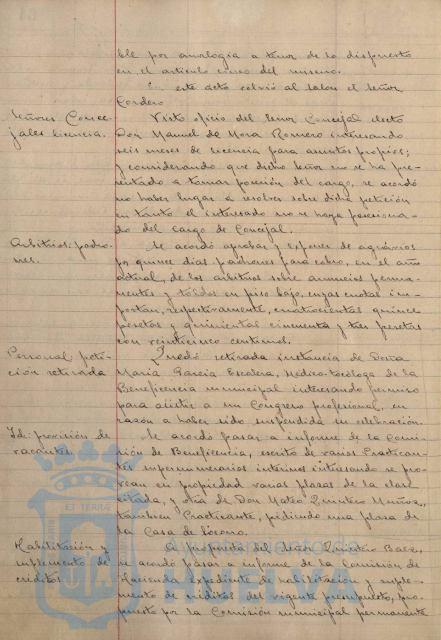 ble por analogia a tenor de lo dispuesto
en el articulo cinco del mismo.
En este acto volvió al salon el señor
Cordero
Señores Conce-
jales licencia.
Visto oficio del Señor Concejal electo
Don Manuel de Mora Romero interesando
seis meses de licencia para asuntos propios;
y considerando que dicho señor no se ha pre-
sentado a tomar posesión del cargo, se acordó
no haber lugar a resolver sobre dicha petición
en tanto el interesado no se haya posesiona-
do del cargo de Concejal.
Arbitrios: padro-
nes.
Se acordó aprobar y exponer de agravios
por quince dias padrones para cobro, en el año
actual, de los arbitrios sobre anuncios perma-
nentes y toldos en piso bajo, cuyas cuotas im-
portan, respectivamente, cuatrocientas quince
pesetas y quinientas cincuenta y tres pesetas
con veinticinco centimos.
Personal: peti-
ción retirada
Quedó retirada instancia de Doña
Maria Garcia Escalera, Médico-tocóloga de la
Beneficencia municipal interesando permiso
para asistir a un Congreso profesional, en
razón a haber sido suspendida su celebración.
Id: provisión de
vacantes
Se acordó pasar a informe de la Comi-
sión de Beneficencia, escrito de varios Practican-
tes supernumerarios interinos interesando se pro-
vean en propiedad varias plazas de la clase
citada, y otra de Don Mateo Quintero Muñoz,
tambien Practicante, pidiendo una plaza de
la Casa de Socorro.
Habilitación y
suplemento de
créditos
A propuesta del señor Quintero Baez,
se acordó pasar a informe de la Comisión de
Hacienda expediente de habilitación y suple-
mento de créditos del vigente presupuesto, pro-
puesto por la Comisión municipal permanente